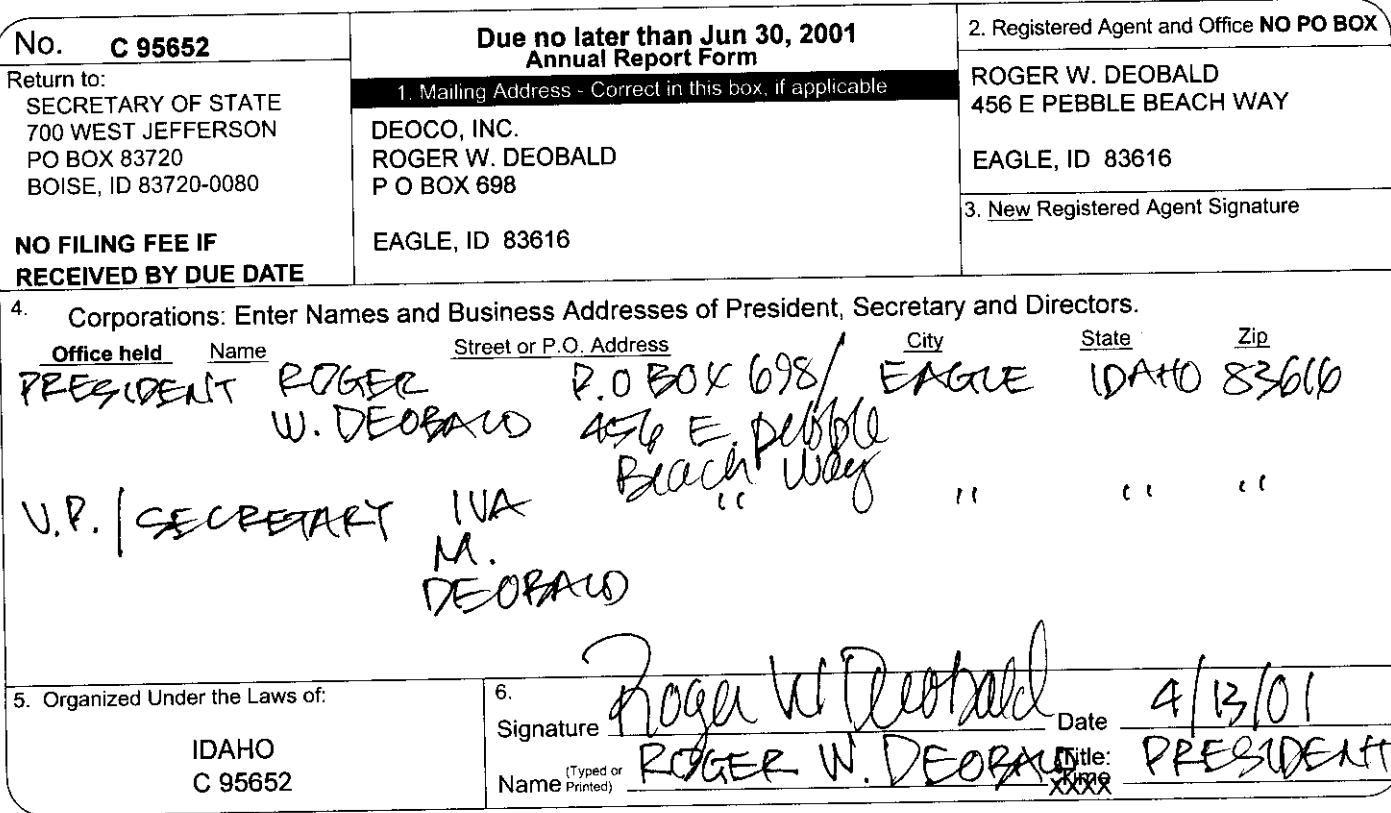 No. C 95652
Return to:
SECRETARY OF STATE
700 WEST JEFFERSON
PO BOX 83720
BOISE, ID 83720-0080
NO FILING FEE IF
RECEIVED BY DUE DATE
Due no later than Jun 30, 2001
Annual Report Form
1. Mailing Address - Correct in this box, if applicable
DEOCO, INC.
ROGER W. DEOBALD
P O BOX 698
EAGLE, ID 83616
2. Registered Agent and Office NO PO BOX
ROGER W. DEOBALD
456 E PEBBLE BEACH WAY
EAGLE, ID 83616
3. New Registered Agent Signature
4. Corporations: Enter Names and Business Addresses of President, Secretary and Directors.
Office held Name Street or P.O. Address City State Zip
PRESIDENT ROGER P.O BOX 698/ EAGLE IDAHO 83616
W. DEOBALD 456 E. Pebble
Beach Way
V.P. / SECRETARY IVA " " " "
M.
DEOBALD
5. Organized Under the Laws of:
IDAHO
C 95652
6.
Signature Roger W Deobald Date 4/13/01
Name (Typed or Printed) ROGER W. DEOBALD Title: PRESIDENT